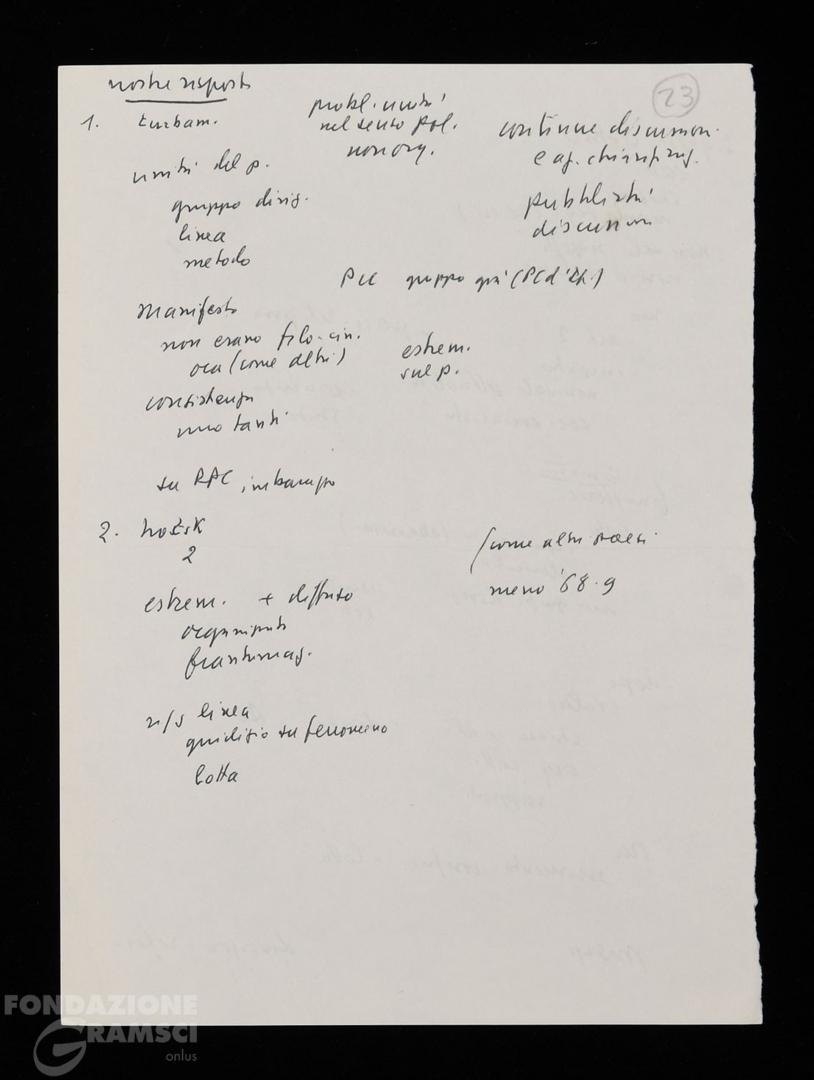 23
nostre risposte
1. turbam.
probl. unità
nel senso pol.
non org.
continue discussion.
e ag.
unità del p.
gruppo dirig.
linea
metodo
pubblicità
discussioni
PCC gruppo già (PCd'It.)
manifesto
non erano filo-cin.
ora (come altri)
estrem.
sul p.
consistenza
uno tanti
su RPC, imbarazzo
2. hoësk
2
(come altri paesi
meno '68-9
estrem. + diffuso
organizzati
frantumaz.
n/s linea
giudizio su fenomeno
lotta
FONDAZIONE
GRAMSCI
onlus